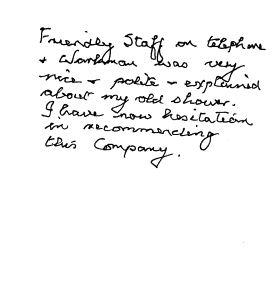 Friendly Staff on telephone
& Workman was very
nice & polite & explained
about my old shower.
I have now hesitation
in recommending
this Company.